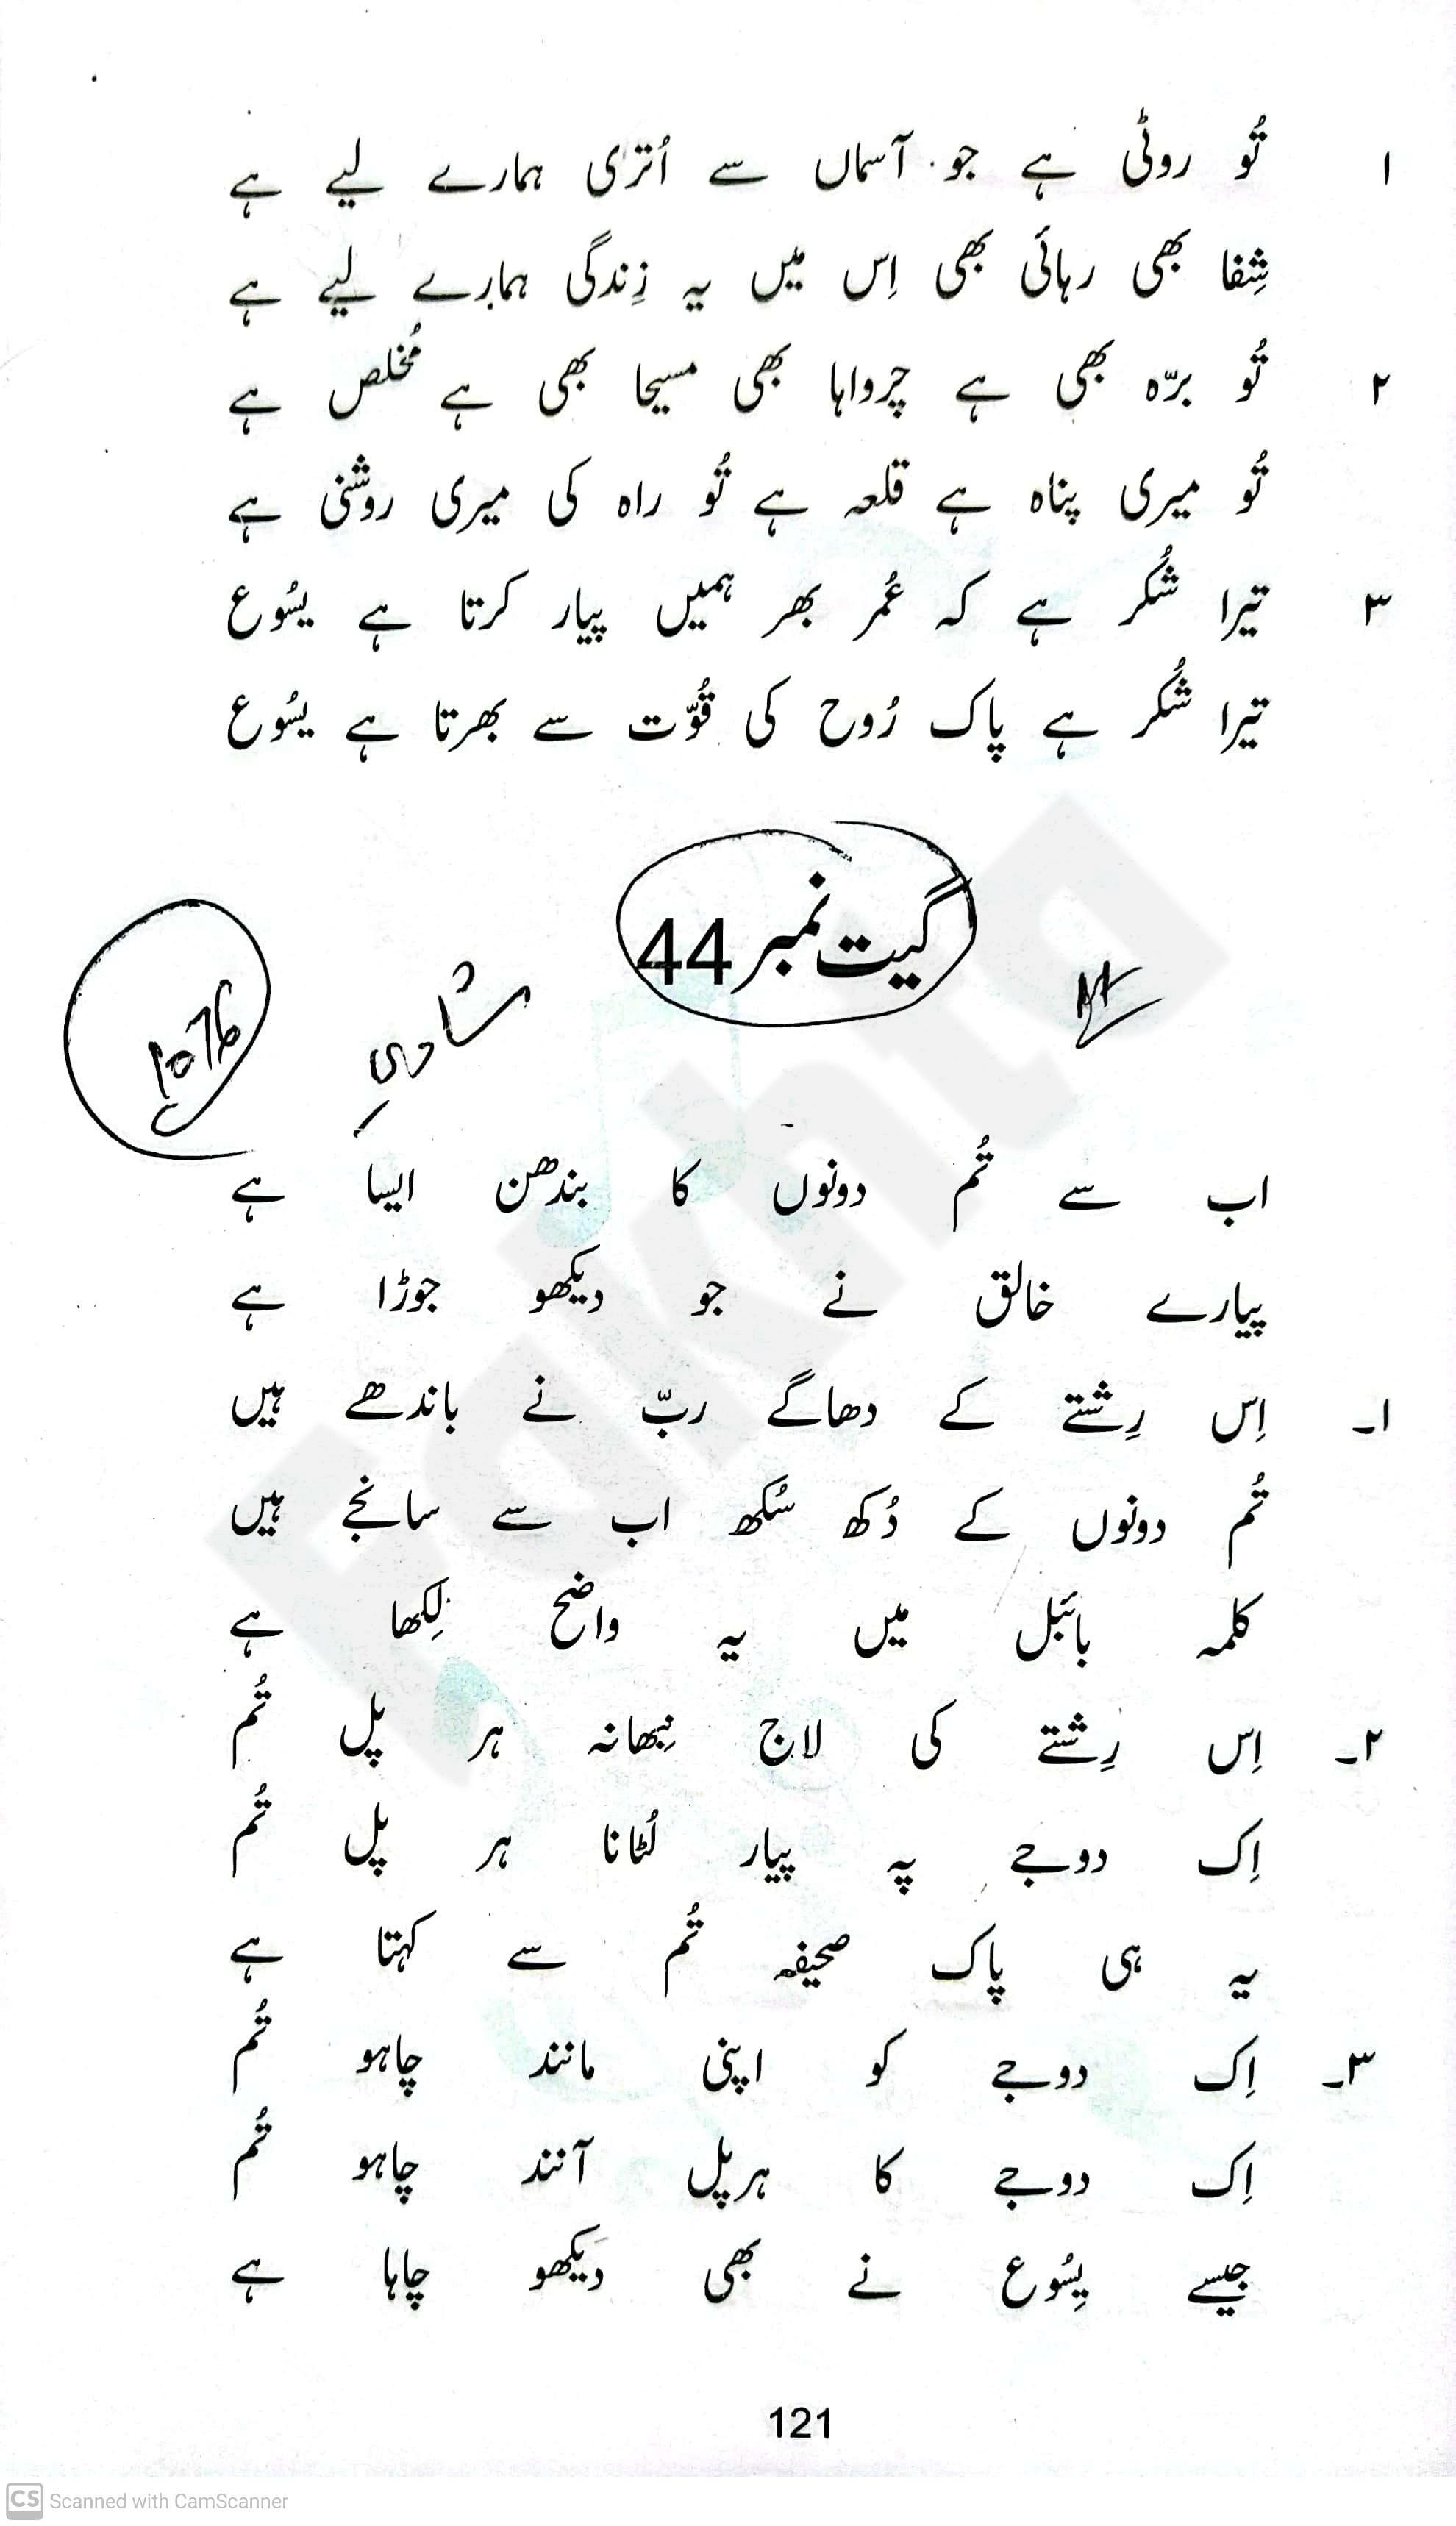 ۱ تُو روٹی ہے جو آسماں سے اُتری ہمارے لیے ہے
شِفا بھی رہائی بھی اِس میں یہ زِندگی ہمارے لیے ہے
۲ تُو برّہ بھی ہے چرواہا بھی مسیحا بھی ہے مُخلص ہے
تُو میری پناہ ہے قلعہ ہے تُو راہ کی میری روشنی ہے
۳ تیرا شُکر ہے کہ عُمر بھر ہمیں پیار کرتا ہے یسُوع
تیرا شُکر ہے پاک رُوح کی قُوّت سے بھرتا ہے یسُوع
گیت نمبر 44
شادی
1076
اب سے تُم دونوں کا بندھن ایسا ہے
پیارے خالق نے جو دیکھو جوڑا ہے
۱۔ اِس رِشتے کے دھاگے ربّ نے باندھے ہیں
تُم دونوں کے دُکھ سُکھ اب سے سانجے ہیں
کلمہ بائبل میں یہ واضح لِکھا ہے
۲۔ اِس رِشتے کی لاج نِبھانہ ہر پل تُم
اِک دوجے پہ پیار لُٹانا ہر پل تُم
یہ ہی پاک صحیفہ تُم سے کہتا ہے
۳۔ اِک دوجے کو اپنی مانند چاہو تُم
اِک دوجے کا ہرپل آنند چاہو تُم
جیسے یِسُوع نے بھی دیکھو چاہا ہے
121
Fakhta
CS Scanned with CamScanner